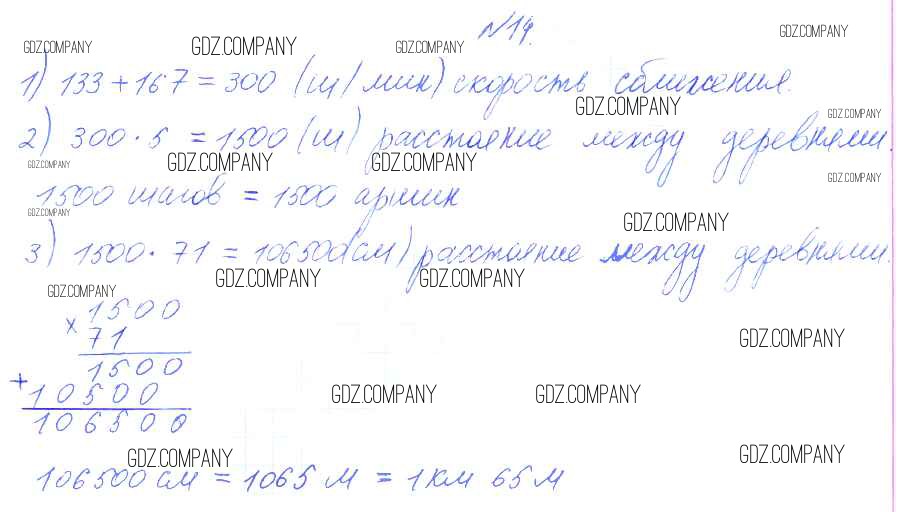 №19.
GDZ.COMPANY GDZ.COMPANY GDZ.COMPANY GDZ.COMPANY
1) 133 + 167 = 300 (ш/мин) скорость сближения.
GDZ.COMPANY GDZ.COMPANY
2) 300 · 5 = 1500 (ш) расстояние между деревнями.
GDZ.COMPANY GDZ.COMPANY GDZ.COMPANY GDZ.COMPANY
1500 шагов = 1500 аршин
GDZ.COMPANY GDZ.COMPANY
3) 1500 · 71 = 106500 (см) расстояние между деревнями.
GDZ.COMPANY GDZ.COMPANY
GDZ.COMPANY
1500
× 71
GDZ.COMPANY
1500
+ 10500
GDZ.COMPANY GDZ.COMPANY
106500
GDZ.COMPANY GDZ.COMPANY
106500 см = 1065 м = 1 км 65 м